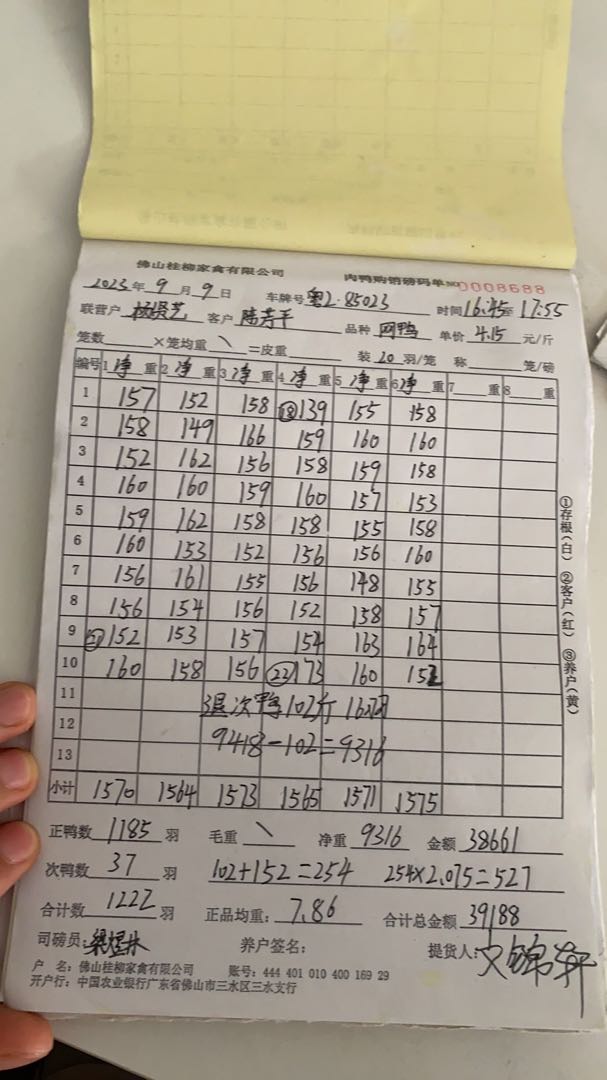 佛山桂柳家禽有限公司 肉鸭购销磅码单 NO 0008688
2023年 9月 9日 车牌号 粤Z·85023 时间 16:45至 17:55
联营户 杨贤艺 客户 陆芳平 品种 网鸭 单价 4.15 元/斤
笼数 ×笼均重 \ =皮重 装 20 羽/笼 称 笼/磅
编号 1净重 2净重 3净重 4净重 5净重 6净重 7 重 8 重
1 157 152 158 ⑱139 155 158
2 158 149 166 159 160 160
3 152 162 156 158 159 158
4 160 160 159 160 157 153
5 159 162 158 158 155 158
6 160 153 152 156 156 160
7 156 161 155 156 148 155
8 156 154 156 152 158 157
9 152 153 157 154 163 164
10 160 158 156 ㉒173 160 152
11 退次鸭102斤 16羽
12 9418-102=9316
13
小计 1570 1564 1573 1565 1571 1575
正鸭数 1185 羽 毛重 \ 净重 9316 金额 38661
次鸭数 37 羽 102+152=254 254×2.075=527
合计数 1222 羽 正品均重: 7.86 合计总金额 39188
司磅员: 养户签名: 提货人: 文锦轩
户 名: 佛山桂柳家禽有限公司 账号: 444 401 010 400 169 29
开户行: 中国农业银行广东省佛山市三水区三水支行
①存根(白) ②客户(红) ③养户(黄)